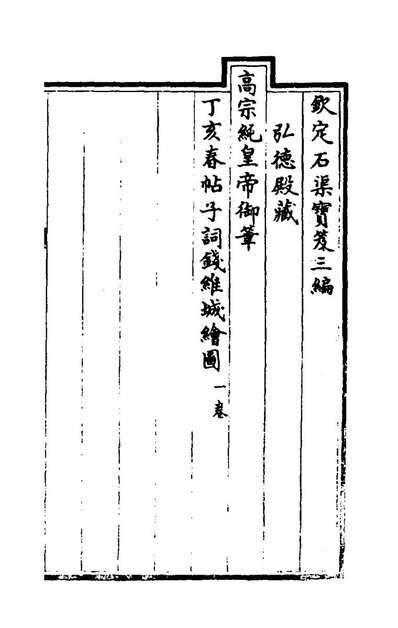 欽定石渠寶笈三編
弘德殿藏
高宗純皇帝御筆
丁亥春帖子詞錢維城繪圖 一卷